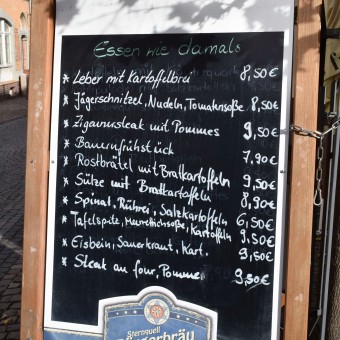 Essen wie damals
* Leber mit Kartoffelbrei 8,50€
* Jägerschnitzel, Nudeln, Tomatensoße 8,50€
* Zigeunersteak mit Pommes 9,50€
* Bauernfrühstück 7,90€
* Rostbrätel mit Bratkartoffeln 9,50€
* Sülze mit Bratkartoffeln 8,90€
* Spinat, Rührei, Salzkartoffeln 6,50€
* Tafelspitz, Meerrettichsoße, Kartoffeln 9,50€
* Eisbein, Sauerkraut, Kart. 9,50€
* Steak au four, Pommes 9,50€
Sternquell